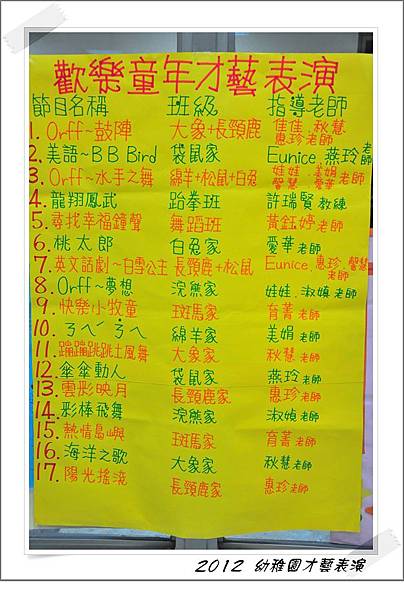 歡樂童年才藝表演
節目名稱 班級 指導老師
1. Orff~鼓陣 大象+長頸鹿 佳佳.秋慧 惠珍老師
2. 美語~BB Bird 袋鼠家 Eunice.燕玲老師
3. Orff~水手之舞 綿羊+松鼠+白兔 娃娃.美娟 智慧.愛華老師
4. 龍翔鳳武 跆拳班 許瑞賢教練
5. 尋找幸福鐘聲 舞蹈班 黃鈺婷老師
6. 桃太郎 白兔家 愛華老師
7. 英文話劇~白雪公主 長頸鹿+松鼠 Eunice.惠珍.智慧老師
8. Orff~夢想 浣熊家 娃娃.淑媜老師
9. 快樂小牧童 斑馬家 育菁老師
10. ㄋㄟˊㄋㄟˊ 綿羊家 美娟老師
11. 蹦蹦跳跳土風舞 大象家 秋慧老師
12. 傘傘動人 袋鼠家 燕玲老師
13. 雲彩映月 長頸鹿家 惠珍老師
14. 彩棒飛舞 浣熊家 淑媜老師
15. 熱情島嶼 斑馬家 育菁老師
16. 海洋之歌 大象家 秋慧老師
17. 陽光搖滾 長頸鹿家 惠珍老師
2012 幼稚園才藝表演